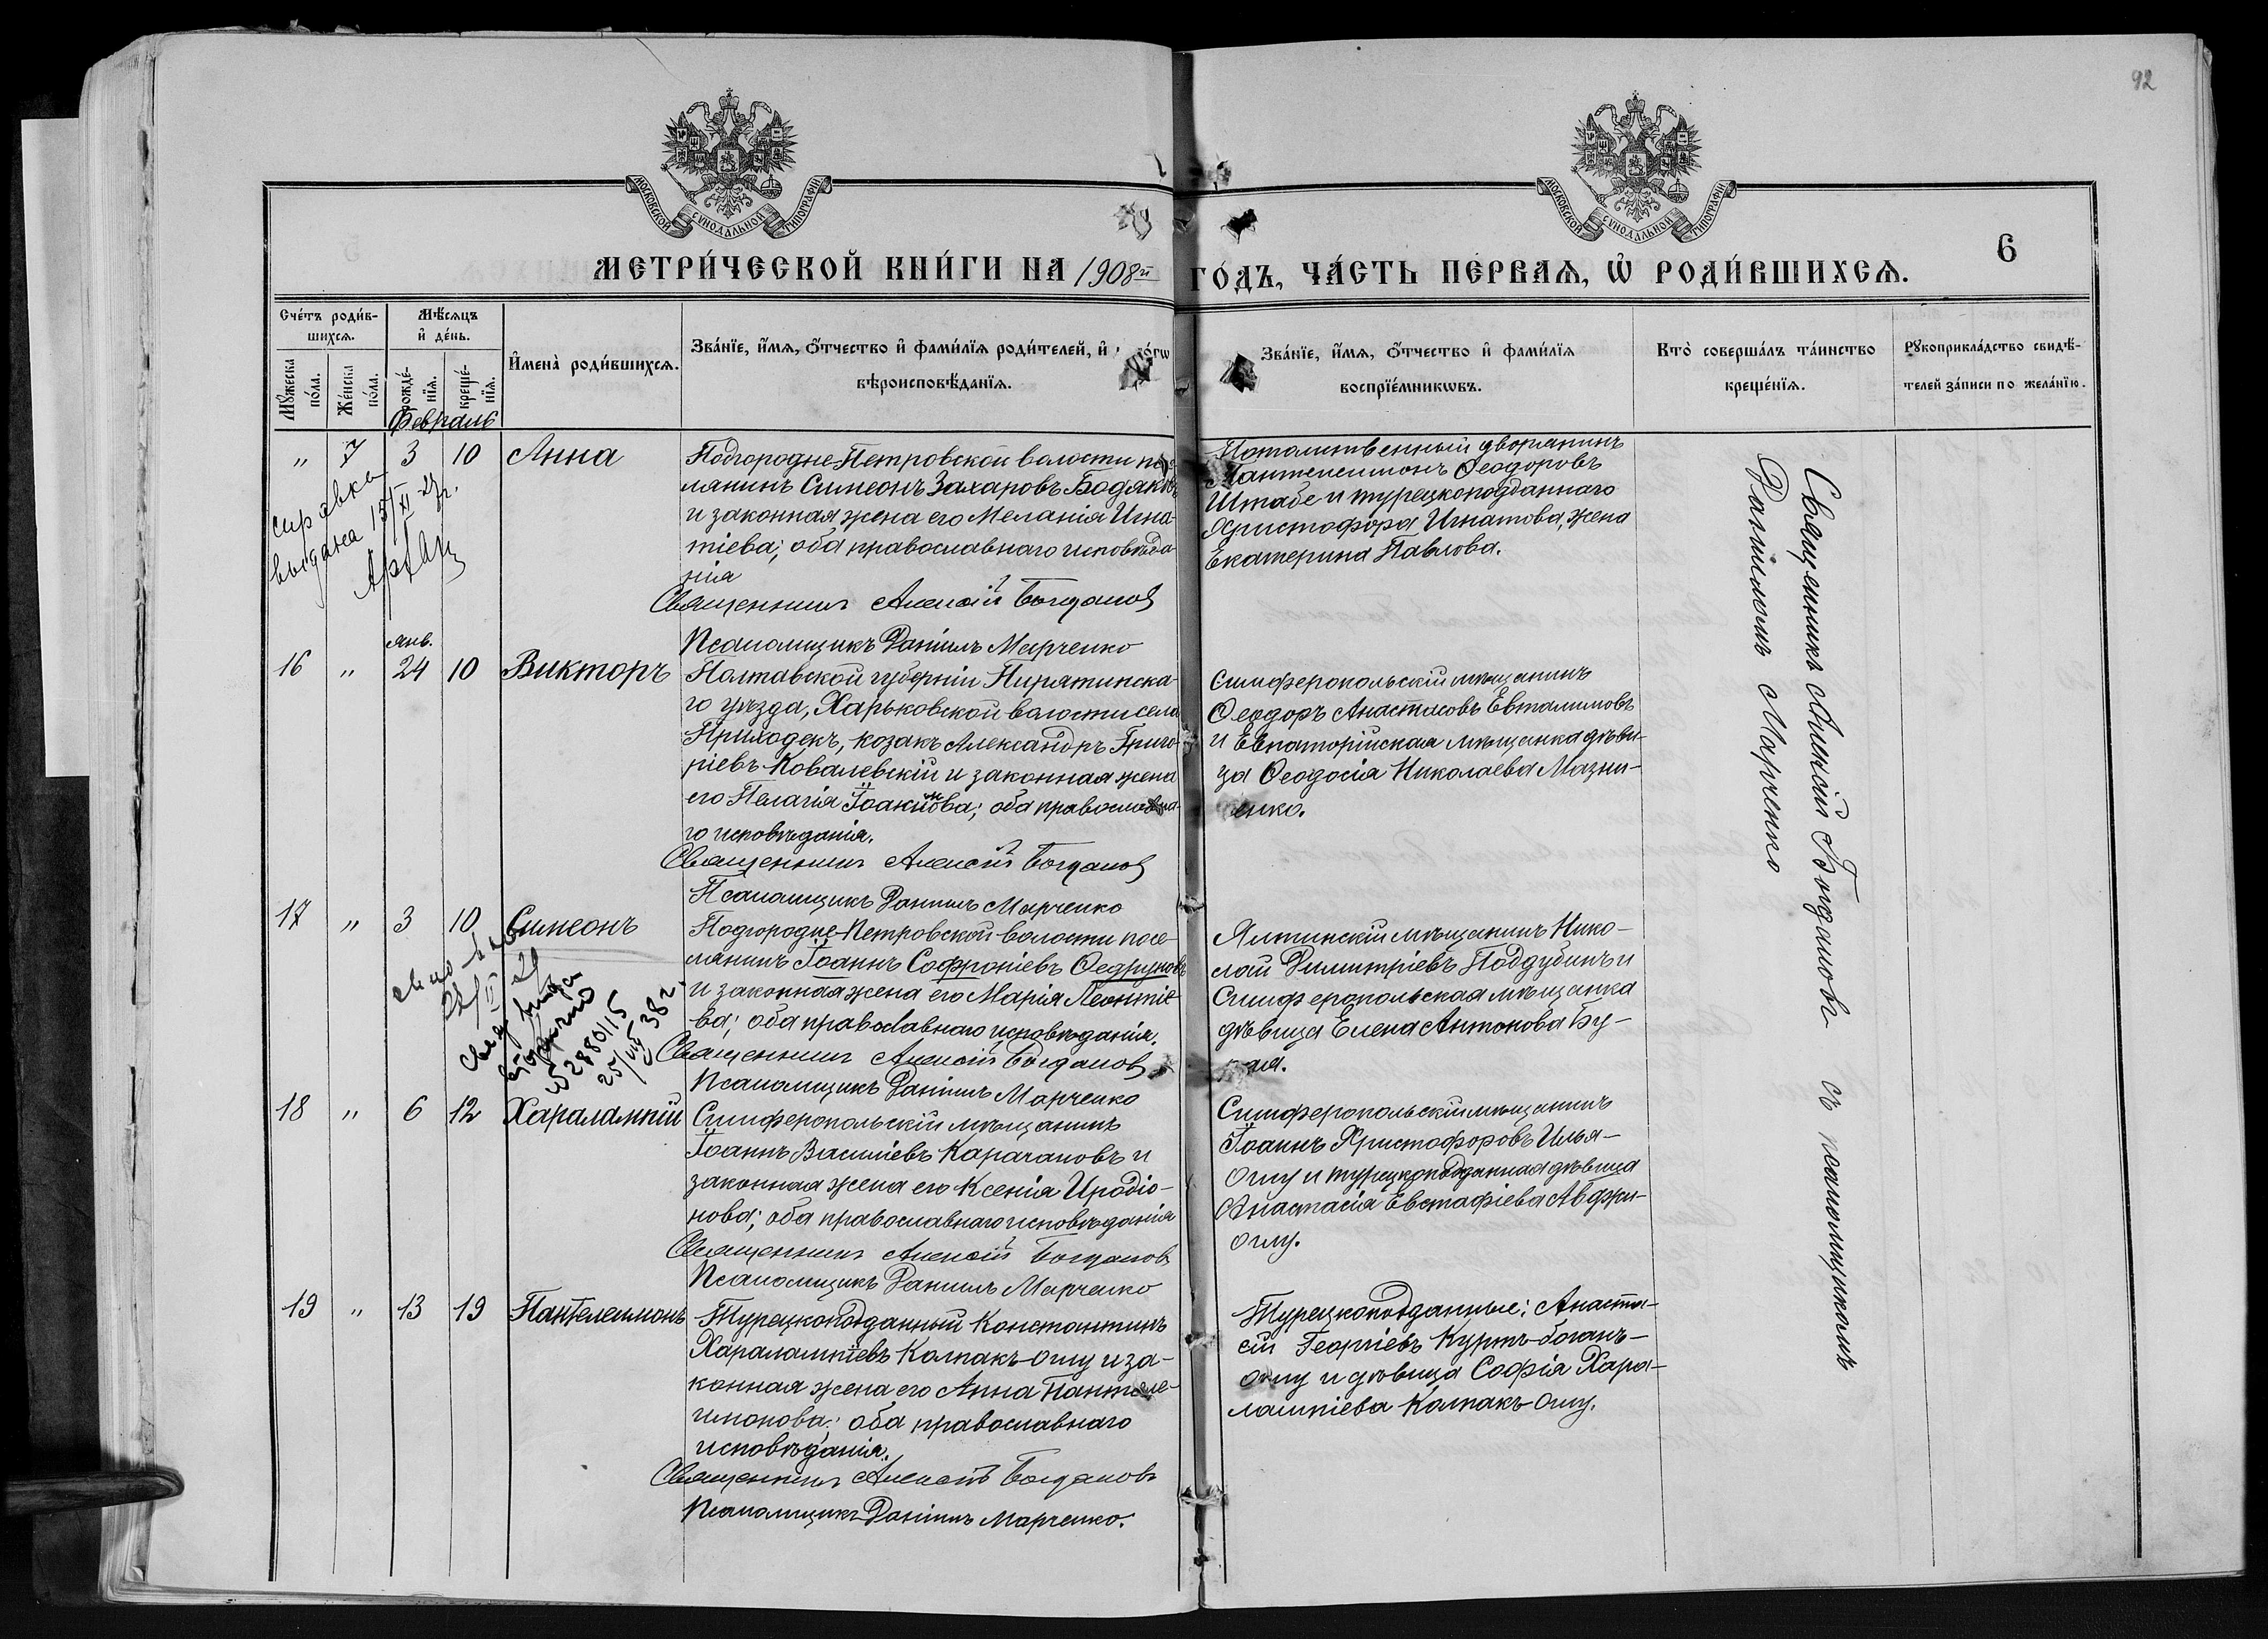 92
МОСКОВСКОЙ СѴНОДАЛЬНОЙ ТИПОГРАФІИ
МОСКОВСКОЙ СѴНОДАЛЬНОЙ ТИПОГРАФІИ
6
МЕТРИ́ЧЕСКОЙ КНИ́ГИ НА 1908й ГО́ДЪ, ЧА́СТЬ ПЕ́РВАѦ, Ѡ҆ РОДИ́ВШИХСѦ.
Сче́тъ роди́в-
шихсѧ.
Мꙋ́жеска
по́ла.
Же́нска
по́ла.
Мѣ́сѧцъ
и҆ де́нь.
рожде́-
нїѧ.
креще́-
нїѧ.
И҆мена̀ роди́вшихсѧ.
Зва́нїе, и҆́мѧ, ѻ҆́тчество и҆ фами́лїѧ роди́телей, и҆
вѣроисповѣ́данїѧ.
Зва́нїе, и҆́мѧ, ѻ҆́тчество и҆ фами́лїѧ
воспрїе́мникѡвъ.
Кто̀ соверша́лъ та́инство
креще́нїѧ.
Рꙋкоприкла́дство свидѣ́-
телей за́писи по жела́нїю.
Февраль
" 7 3 10 Анна
Подгородне-Петровской волости посе-
лянинъ Симеонъ Захаровъ Бодяковъ
и законная жена его Меланія Игна-
тіева; оба православнаго исповѣда-
нія
Священникъ Алексій Богданов
Псаломщикъ Даніилъ Марченко
Потомственный дворянинъ
Пантелеимонъ Ѳеодоровъ
Штабе и турецкоподданнаго
Христофора Игнатова, жена
Екатерина Павлова.
справка
выдана 15/XI-27г.
Священникъ Алексій Богдановъ съ псаломщикомъ
Даніиломъ Марченко
Янв.
16 " 24 10 Викторъ
Полтавской губерніи Пирятинска-
го уѣзда, Харьковской волости села
Приходекъ, козакъ Александръ Григо-
ріевъ Ковалевскій и законная жена
его Пелагія Іоакимова; оба православна-
го исповѣданія.
Священникъ Алексій Богданов
Псаломщикъ Даніилъ Марченко
Симферопольскій мѣщанинъ
Ѳеодоръ Анастасовъ Евталимовъ
и Евпаторійская мѣщанка дѣви-
ца Ѳеодосія Николаева Мазни-
ченко.
17 " 3 10 Симеонъ
Подгородне-Петровской волости посе-
лянинъ Іоаннъ Софроніевъ Ѳедруновъ
и законная жена его Марія Леонтіе-
ва; оба православнаго исповѣданія.
Священникъ Алексій Богданов
Псаломщикъ Даніилъ Марченко
Ялтинскій мѣщанинъ Нико-
лай Димитріевъ Поддубинъ и
Симферопольская мѣщанка
дѣвица Елена Антонова Бу-
288015
25/VIII 38 г.
18 " 6 12 Харалампій
Симферопольскій мѣщанинъ
Іоаннъ Василіевъ Карачановъ и
законная жена его Ксенія Иродіо-
нова; оба православнаго исповѣданія
Священникъ Алексій Богдановъ
Псаломщикъ Даніилъ Марченко
Симферопольскій мѣщанинъ
Іоаннъ Христофоровъ Илья-
Оглу и турецкоподданная дѣвица
Анастасія Евстафіева Авджи-
оглу.
19 " 13 19 Пантелеимонъ
Турецкоподданный Константинъ
Харалампіевъ Колпакъ-Оглу и за-
конная жена его Анна Пантеле-
имонова; оба православнаго
исповѣданія.
Священникъ Алексій Богдановъ
Псаломщикъ Даніилъ Марченко.
Турецкоподданные: Анаста-
сій Георгіевъ Куртъ-боганъ-
оглу и дѣвица Софія Хара-
лампіева Колпакъ-Оглу.